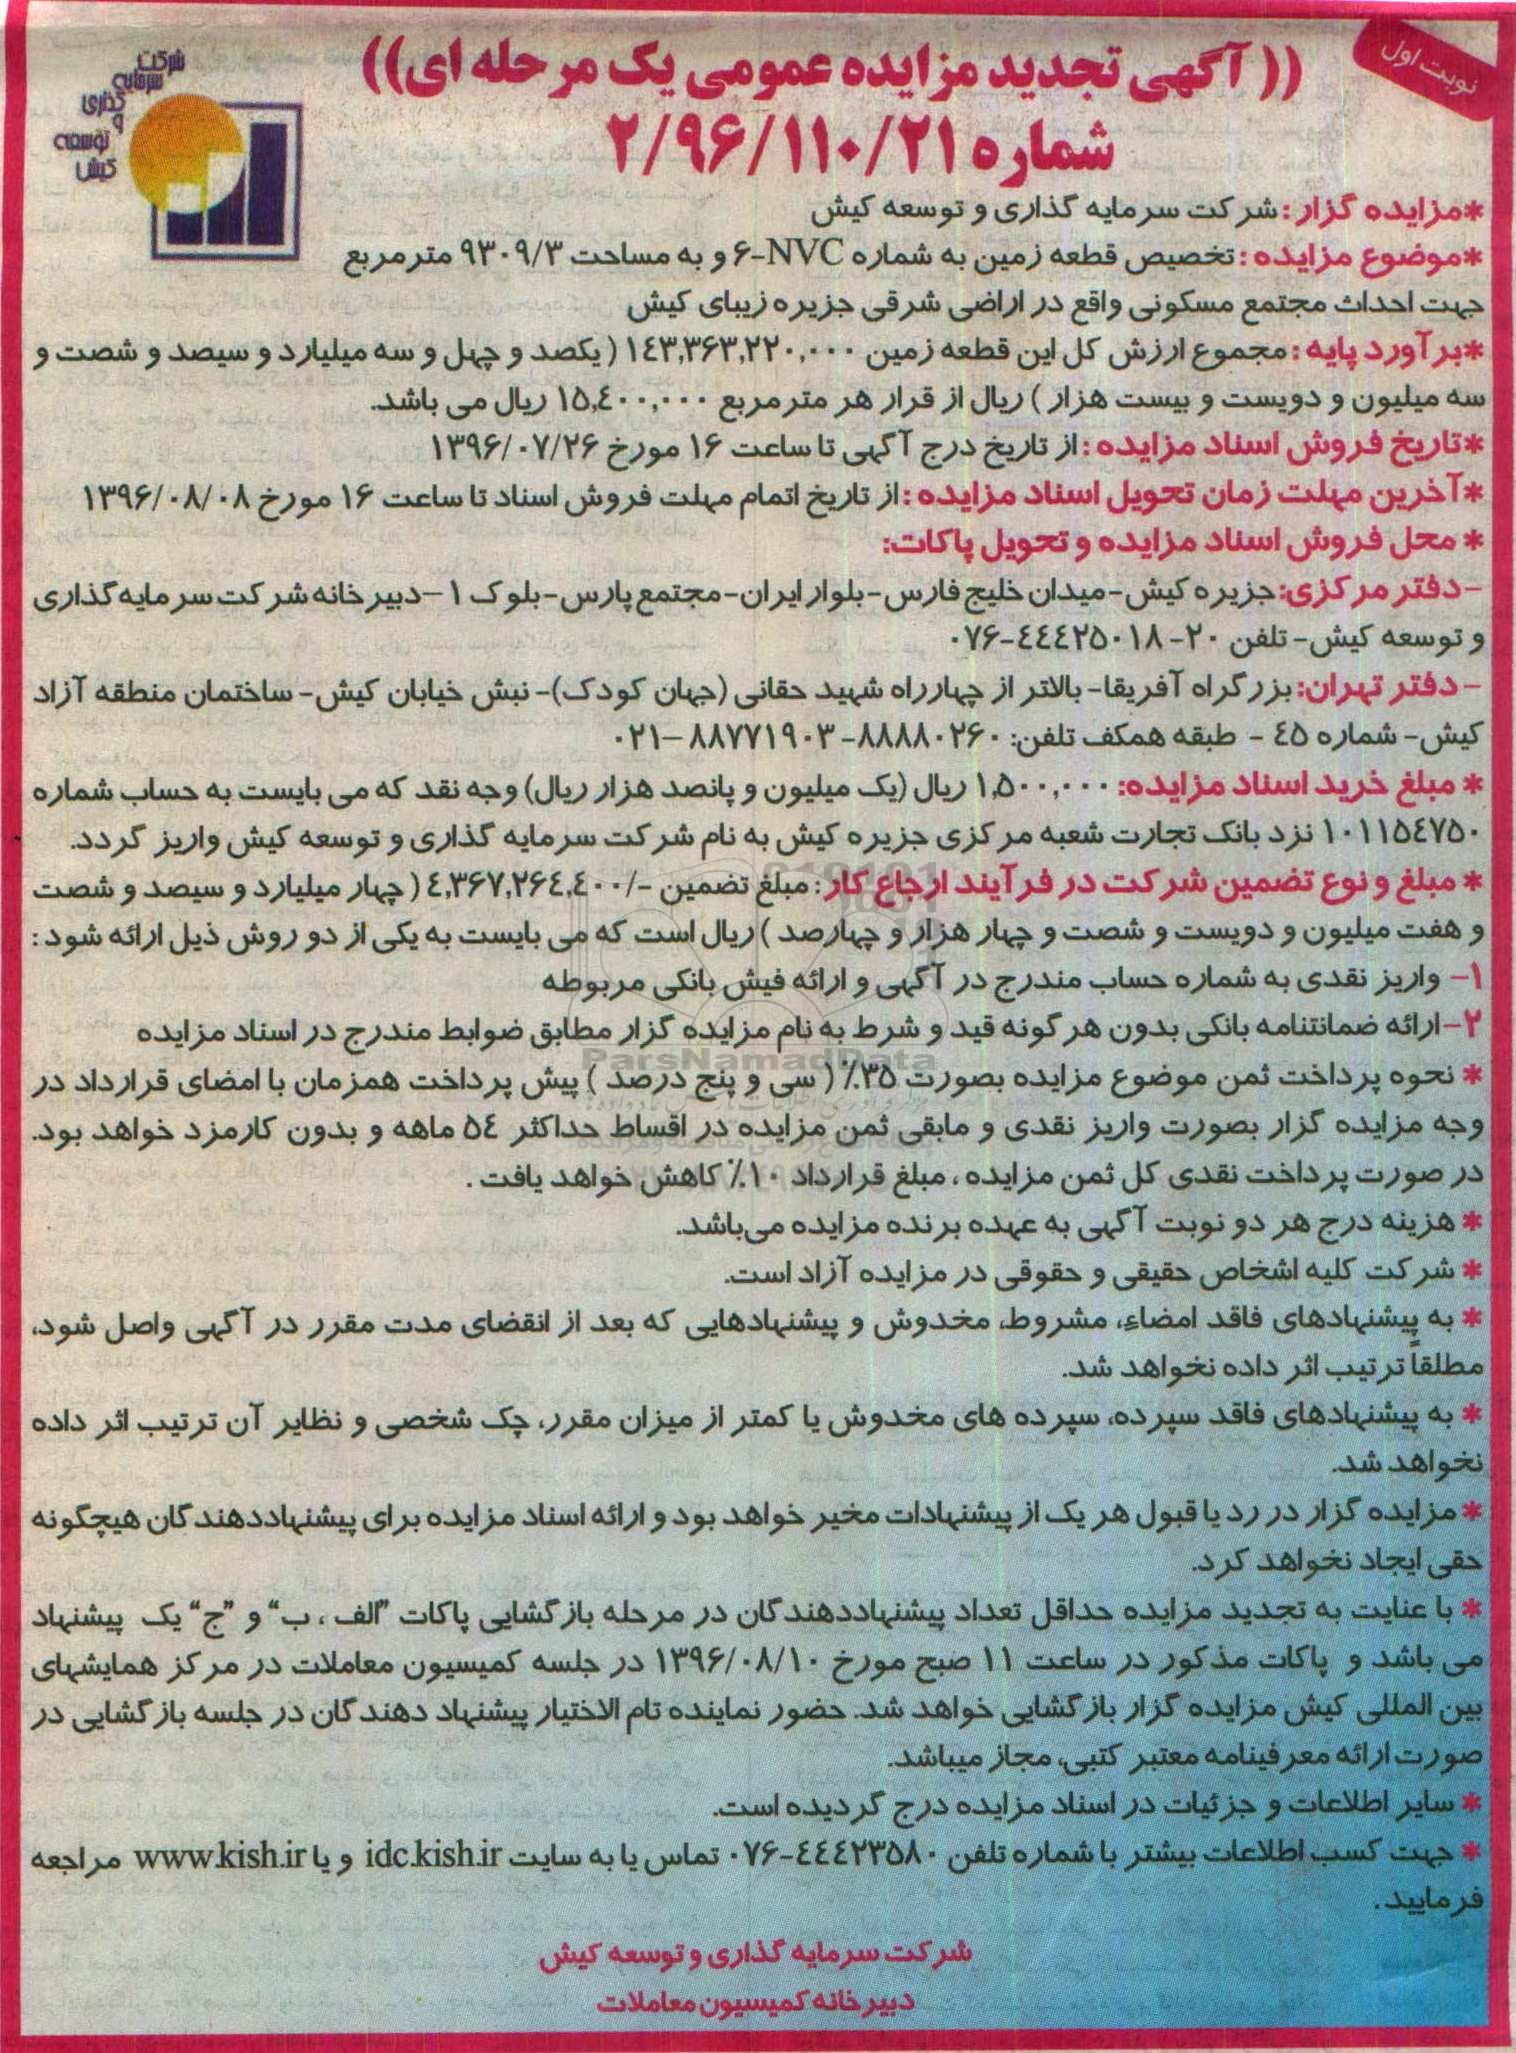 نوبت اول
(( آگهی تجدید مزایده عمومی یک مرحله ای))
شماره ۲/۹۶/۱۱۰/۲۱
شرکت
سرمایه
گذاری
و
توسعه
کیش
*مزایده گزار : شرکت سرمایه گذاری و توسعه کیش
*موضوع مزایده : تخصیص قطعه زمین به شماره ۶-NVC و به مساحت ۹۳۰۹/۳ مترمربع
جهت احداث مجتمع مسکونی واقع در اراضی شرقی جزیره زیبای کیش
*برآورد پایه : مجموع ارزش کل این قطعه زمین ۱۴۳,۳۶۳,۲۲۰,۰۰۰ ( یکصد و چهل و سه میلیارد و سیصد و شصت و
سه میلیون و دویست و بیست هزار ) ریال از قرار هر مترمربع ۱۵,۴۰۰,۰۰۰ ریال می باشد.
*تاریخ فروش اسناد مزایده : از تاریخ درج آگهی تا ساعت ۱۶ مورخ ۱۳۹۶/۰۷/۲۶
*آخرین مهلت زمان تحویل اسناد مزایده : از تاریخ اتمام مهلت فروش اسناد تا ساعت ۱۶ مورخ ۱۳۹۶/۰۸/۰۸
* محل فروش اسناد مزایده و تحویل پاکات:
-دفتر مرکزی: جزیره کیش-میدان خلیج فارس-بلوار ایران-مجتمع پارس-بلوک ۱ -دبیرخانه شرکت سرمایه گذاری
و توسعه کیش- تلفن ۲۰- ۴۴۴۲۵۰۱۸-۰۷۶
- دفتر تهران: بزرگراه آفریقا- بالاتر از چهارراه شهید حقانی (جهان کودک)- نبش خیابان کیش- ساختمان منطقه آزاد
کیش- شماره ۴۵ - طبقه همکف تلفن: ۸۸۸۸۰۲۶۰- ۸۸۷۷۱۹۰۳ -۰۲۱
* مبلغ خرید اسناد مزایده: ۱,۵۰۰,۰۰۰ ریال (یک میلیون و پانصد هزار ریال) وجه نقد که می بایست به حساب شماره
۱۰۱۱۵۴۷۵۰ نزد بانک تجارت شعبه مرکزی جزیره کیش به نام شرکت سرمایه گذاری و توسعه کیش واریز گردد.
* مبلغ و نوع تضمین شرکت در فرآیند ارجاع کار : مبلغ تضمین -/۴,۳۶۷,۲۶۴,۴۰۰ ( چهار میلیارد و سیصد و شصت
و هفت میلیون و دویست و شصت و چهار هزار و چهارصد ) ریال است که می بایست به یکی از دو روش ذیل ارائه شود :
۱- واریز نقدی به شماره حساب مندرج در آگهی و ارائه فیش بانکی مربوطه
۲-ارائه ضمانتنامه بانکی بدون هر گونه قید و شرط به نام مزایده گزار مطابق ضوابط مندرج در اسناد مزایده
ParsNamadData
* نحوه پرداخت ثمن موضوع مزایده بصورت ۳۵٪ ( سی و پنج درصد ) پیش پرداخت همزمان با امضای قرارداد در
وجه مزایده گزار بصورت واریز نقدی و مابقی ثمن مزایده در اقساط حداکثر ۵۴ ماهه و بدون کارمزد خواهد بود.
در صورت پرداخت نقدی کل ثمن مزایده ، مبلغ قرارداد ۱۰٪ کاهش خواهد یافت .
* هزینه درج هر دو نوبت آگهی به عهده برنده مزایده می‌باشد.
* شرکت کلیه اشخاص حقیقی و حقوقی در مزایده آزاد است.
* به پیشنهادهای فاقد امضاء، مشروط، مخدوش و پیشنهادهایی که بعد از انقضای مدت مقرر در آگهی واصل شود،
مطلقاً ترتیب اثر داده نخواهد شد.
* به پیشنهادهای فاقد سپرده، سپرده های مخدوش یا کمتر از میزان مقرر، چک شخصی و نظایر آن ترتیب اثر داده
نخواهد شد.
* مزایده گزار در رد یا قبول هر یک از پیشنهادات مخیر خواهد بود و ارائه اسناد مزایده برای پیشنهاددهندگان هیچگونه
حقی ایجاد نخواهد کرد.
* با عنایت به تجدید مزایده حداقل تعداد پیشنهاددهندگان در مرحله بازگشایی پاکات "الف ، ب" و "ج" یک پیشنهاد
می باشد و پاکات مذکور در ساعت ۱۱ صبح مورخ ۱۳۹۶/۰۸/۱۰ در جلسه کمیسیون معاملات در مرکز همایشهای
بین المللی کیش مزایده گزار بازگشایی خواهد شد. حضور نماینده تام الاختیار پیشنهاد دهندگان در جلسه بازگشایی در
صورت ارائه معرفینامه معتبر کتبی، مجاز میباشد.
* سایر اطلاعات و جزئیات در اسناد مزایده درج گردیده است.
* جهت کسب اطلاعات بیشتر با شماره تلفن ۴۴۴۲۳۵۸۰-۰۷۶ تماس یا به سایت idc.kish.ir و یا www.kish.ir مراجعه
فرمایید .
شرکت سرمایه گذاری و توسعه کیش
دبیرخانه کمیسیون معاملات